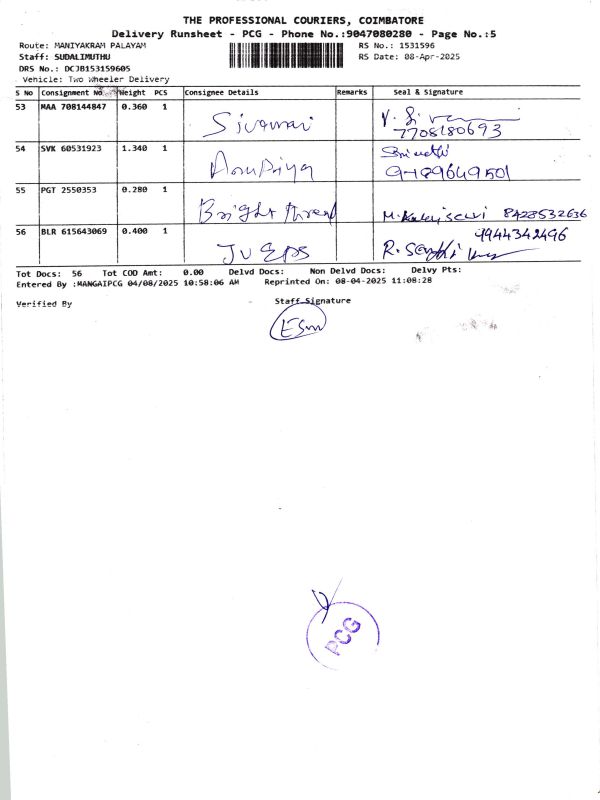 THE PROFESSIONAL COURIERS, COIMBATORE
Delivery Runsheet - PCG - Phone No.:9047080280 - Page No.:5
Route: MANIYAKRAM PALAYAM RS No.: 1531596
Staff: SUDALIMUTHU RS Date: 08-Apr-2025
DRS No.: DCJB153159605
Vehicle: Two Wheeler Delivery
S No Consignment No. Weight PCS Consignee Details Remarks Seal & Signature
53 MAA 708144847 0.360 1
7708180693
54 SVK 60531923 1.340 1
9489649501
55 PGT 2550353 0.280 1 Bright thread 8428532636
56 BLR 615643069 0.400 1 9944342496
Tot Docs: 56 Tot COD Amt: 0.00 Delvd Docs: Non Delvd Docs: Delvy Pts:
Entered By :MANGAIPCG 04/08/2025 10:58:06 AM Reprinted On: 08-04-2025 11:08:28
Verified By Staff Signature
PCG